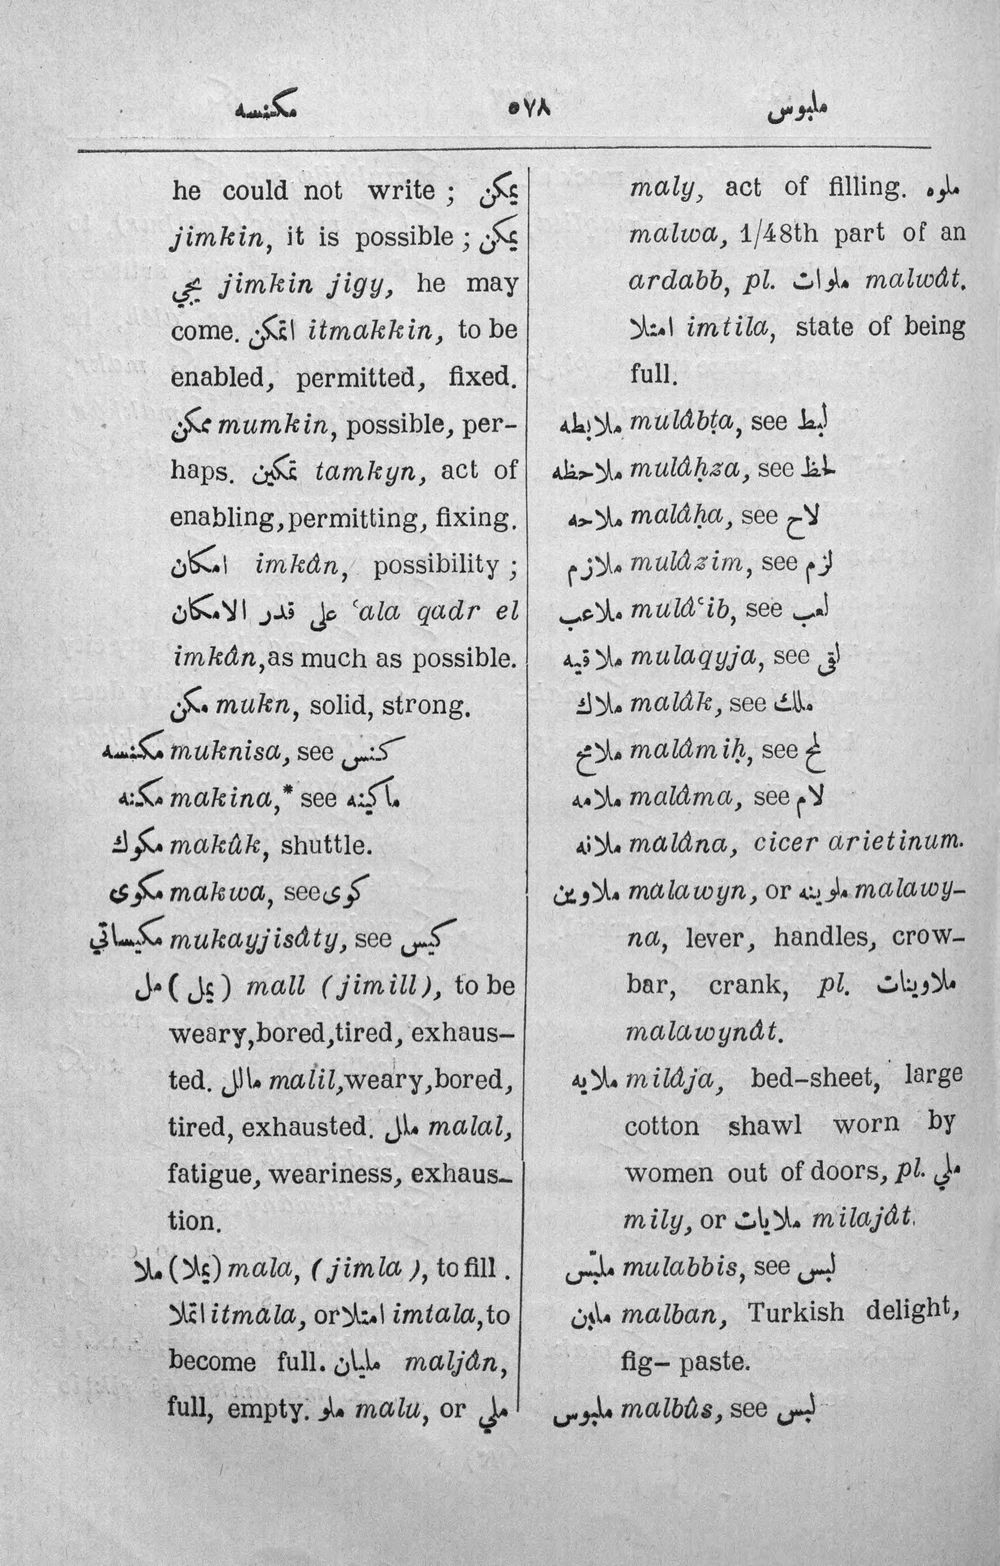 مكنسه ٥٧٨ ملبوس
he could not write ; يمكن
jimkin, it is possible ; يمكن
يجي jimkin jigy, he may
come. اتمكن itmakkin, to be
enabled, permitted, fixed.
ممكن mumkin, possible, per-
haps. تمكين tamkyn, act of
enabling, permitting, fixing.
امكان imkân, possibility ;
على قدر الامكان ʿala qadr el
imkân, as much as possible.
مكن mukn, solid, strong.
مكنسه muknisa, see كنس
مكنه makina,* see ماكينه
مكوك makûk, shuttle.
مكوى makwa, see كوى
مكيساتي mukayjisâty, see كيس
مل (يمل) mall (jimill), to be
weary, bored, tired, exhaus-
ted. مالل malil, weary, bored,
tired, exhausted. ملل malal,
fatigue, weariness, exhaus-
tion.
ملا (يملا) mala, (jimla), to fill.
اتملا itmala, or امتلا imtala, to
become full. مليان maljân,
full, empty. ملو malu, or ملي
maly, act of filling. ملوه
malwa, 1/48th part of an
ardabb, pl. ملوات malwât.
امتلا imtila, state of being
full.
ملابطه mulâbṭa, see لبط
ملاحظه mulâḥza, see لحظ
ملاحه malâḥa, see لاح
ملازم mulâzim, see لزم
ملاعب mulâʿib, see لعب
ملاقيه mulaqyja, see لقى
ملاك malâk, see ملك
ملامح malâmiḥ, see لمح
ملامه malâma, see لام
ملانه malâna, cicer arietinum.
ملاوين malawyn, or ملوينه malawy-
na, lever, handles, crow-
bar, crank, pl. ملاوينات
malawynât.
ملايه milâja, bed-sheet, large
cotton shawl worn by
women out of doors, pl. ملي
mily, or ملايات milajât.
ملبّس mulabbis, see لبس
ملبن malban, Turkish delight,
fig- paste.
ملبوس malbûs, see لبس